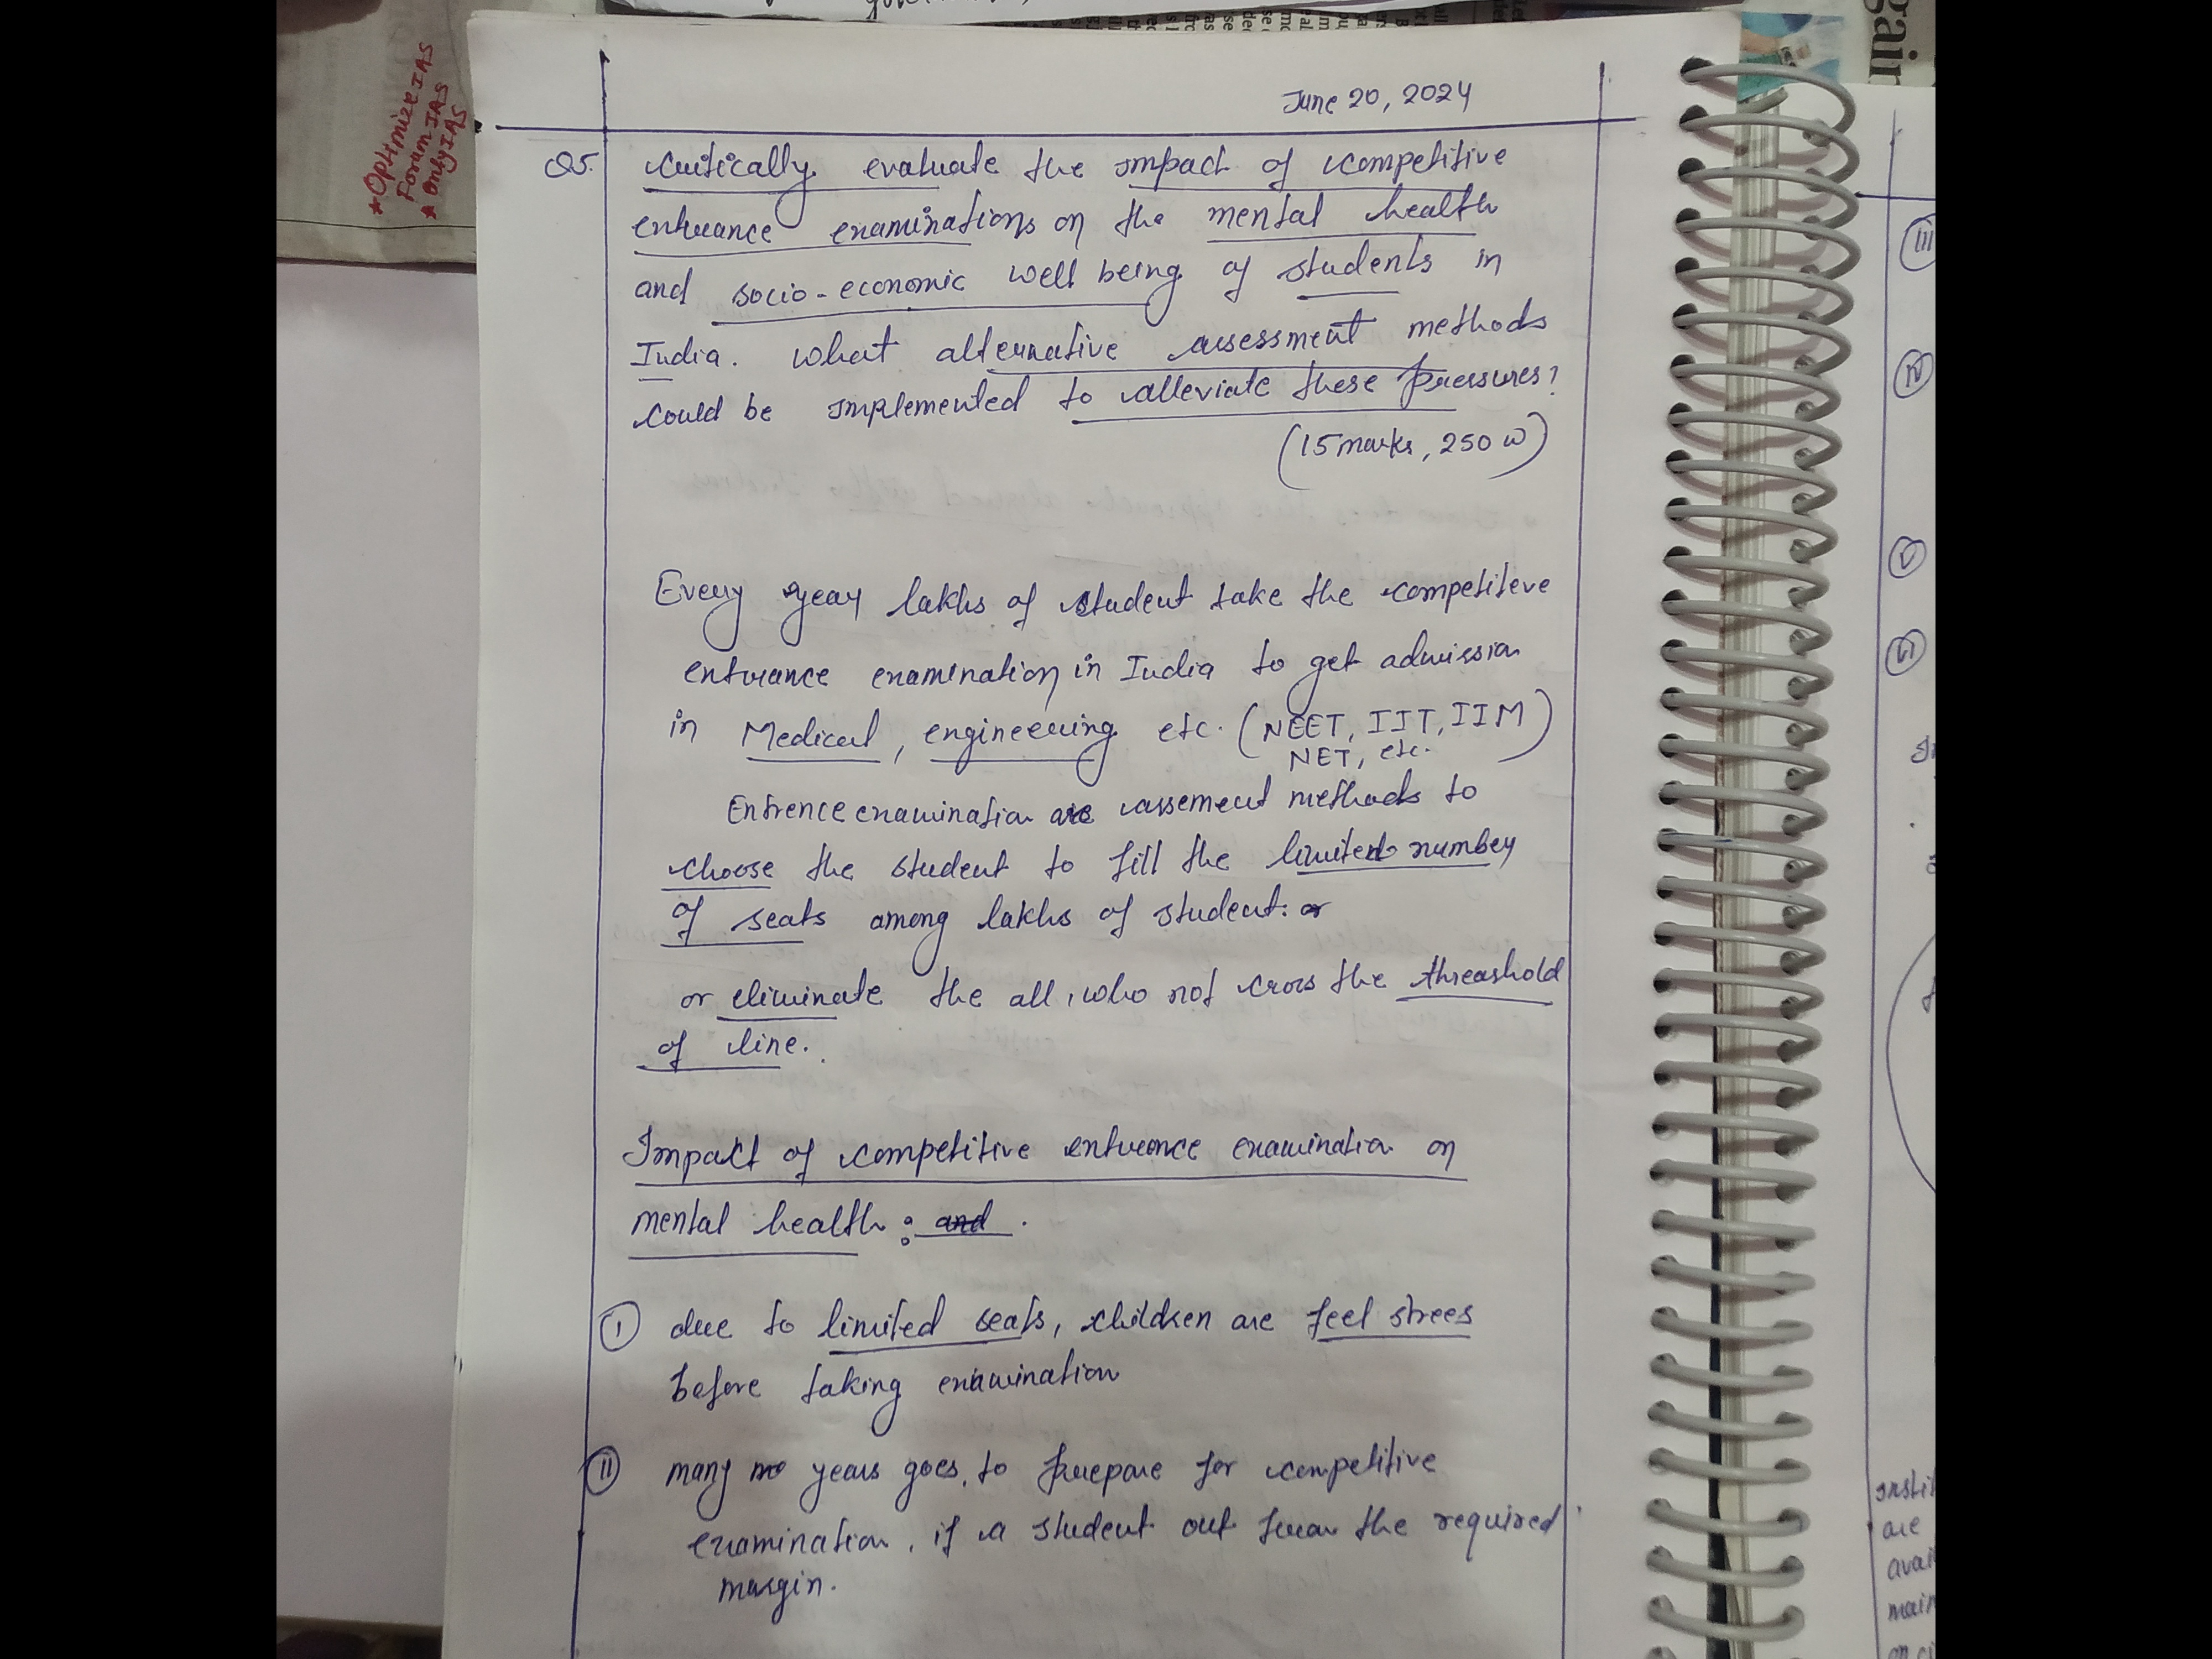 ★ Optimize IAS
Forum IAS
★ Only IAS
June 20, 2024
Q5. Critically evaluate the impact of competitive
entrance examinations on the mental health
and socio-economic well being of students in
India. What alternative assessment methods
could be implemented to alleviate these pressures?
(15 marks, 250 W)
Every year lakhs of student take the competiteve
entrance examination in India to get admission
in Medical, engineering etc. (NEET, IIT, IIM
NET, etc.)
Entrence examination are assement methods to
choose the student to fill the limited number
of seats among lakhs of student. or
or eliminate the all, who not cross the threashold
of line.
Impact of competitive entrance examination on
mental health: and.
I due to limited seats, children are feel strees
before taking examination
II many years goes, to prepare for competitive
examination, if a student out from the required
margin.
III
IV
V
VI
are